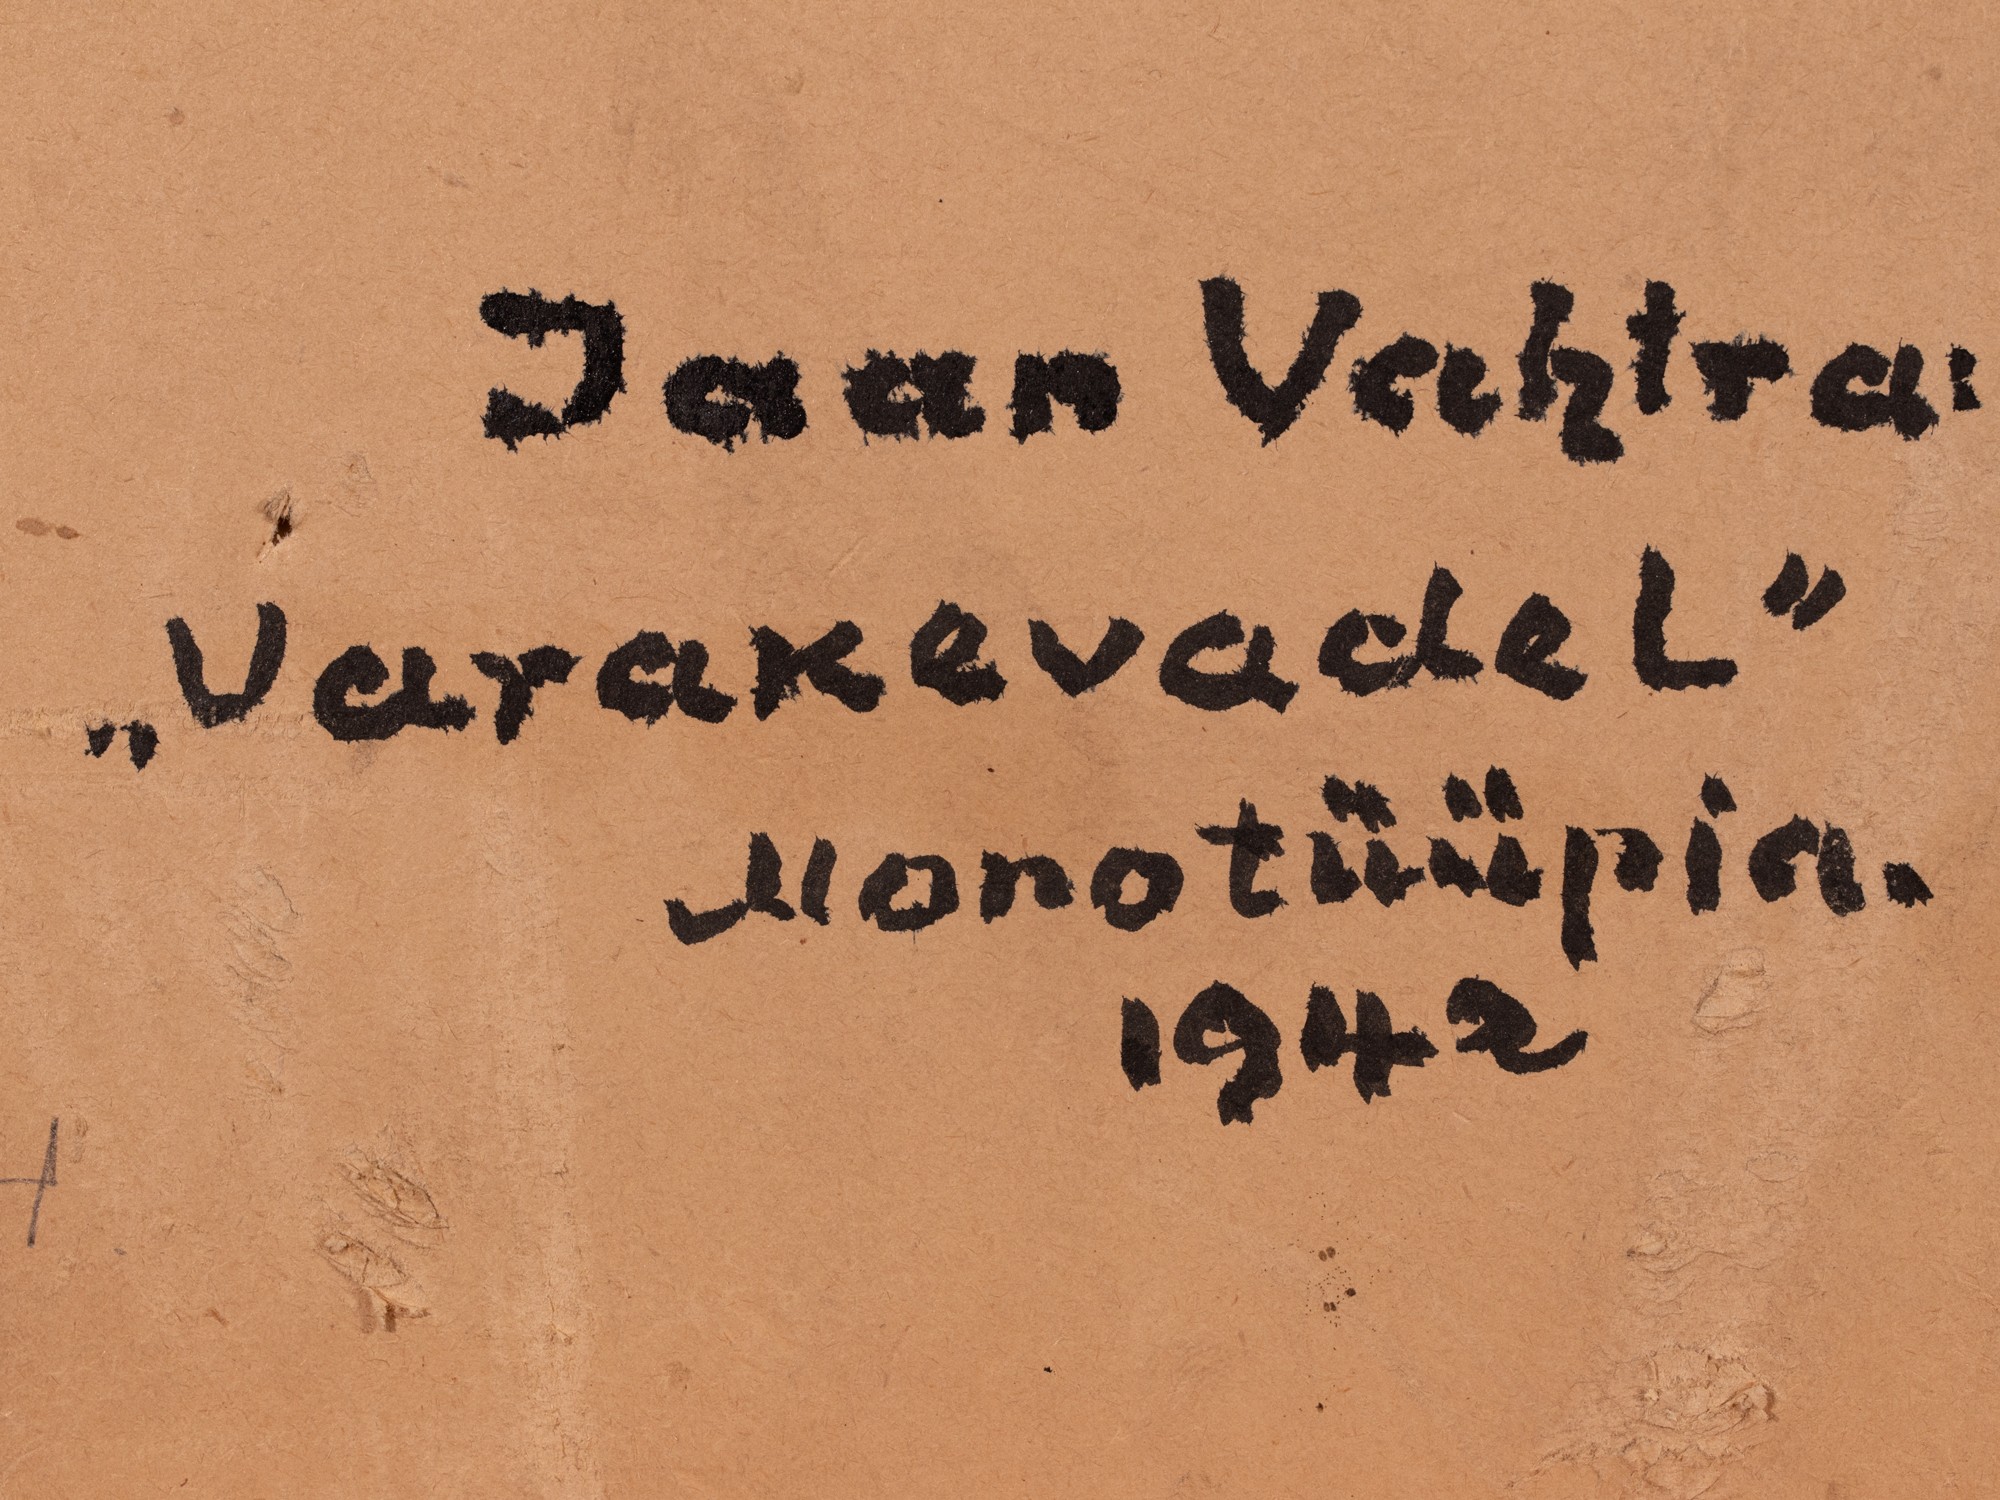 Jaan Vahtra:
„Varakevadel”
Monotüüpia.
1942